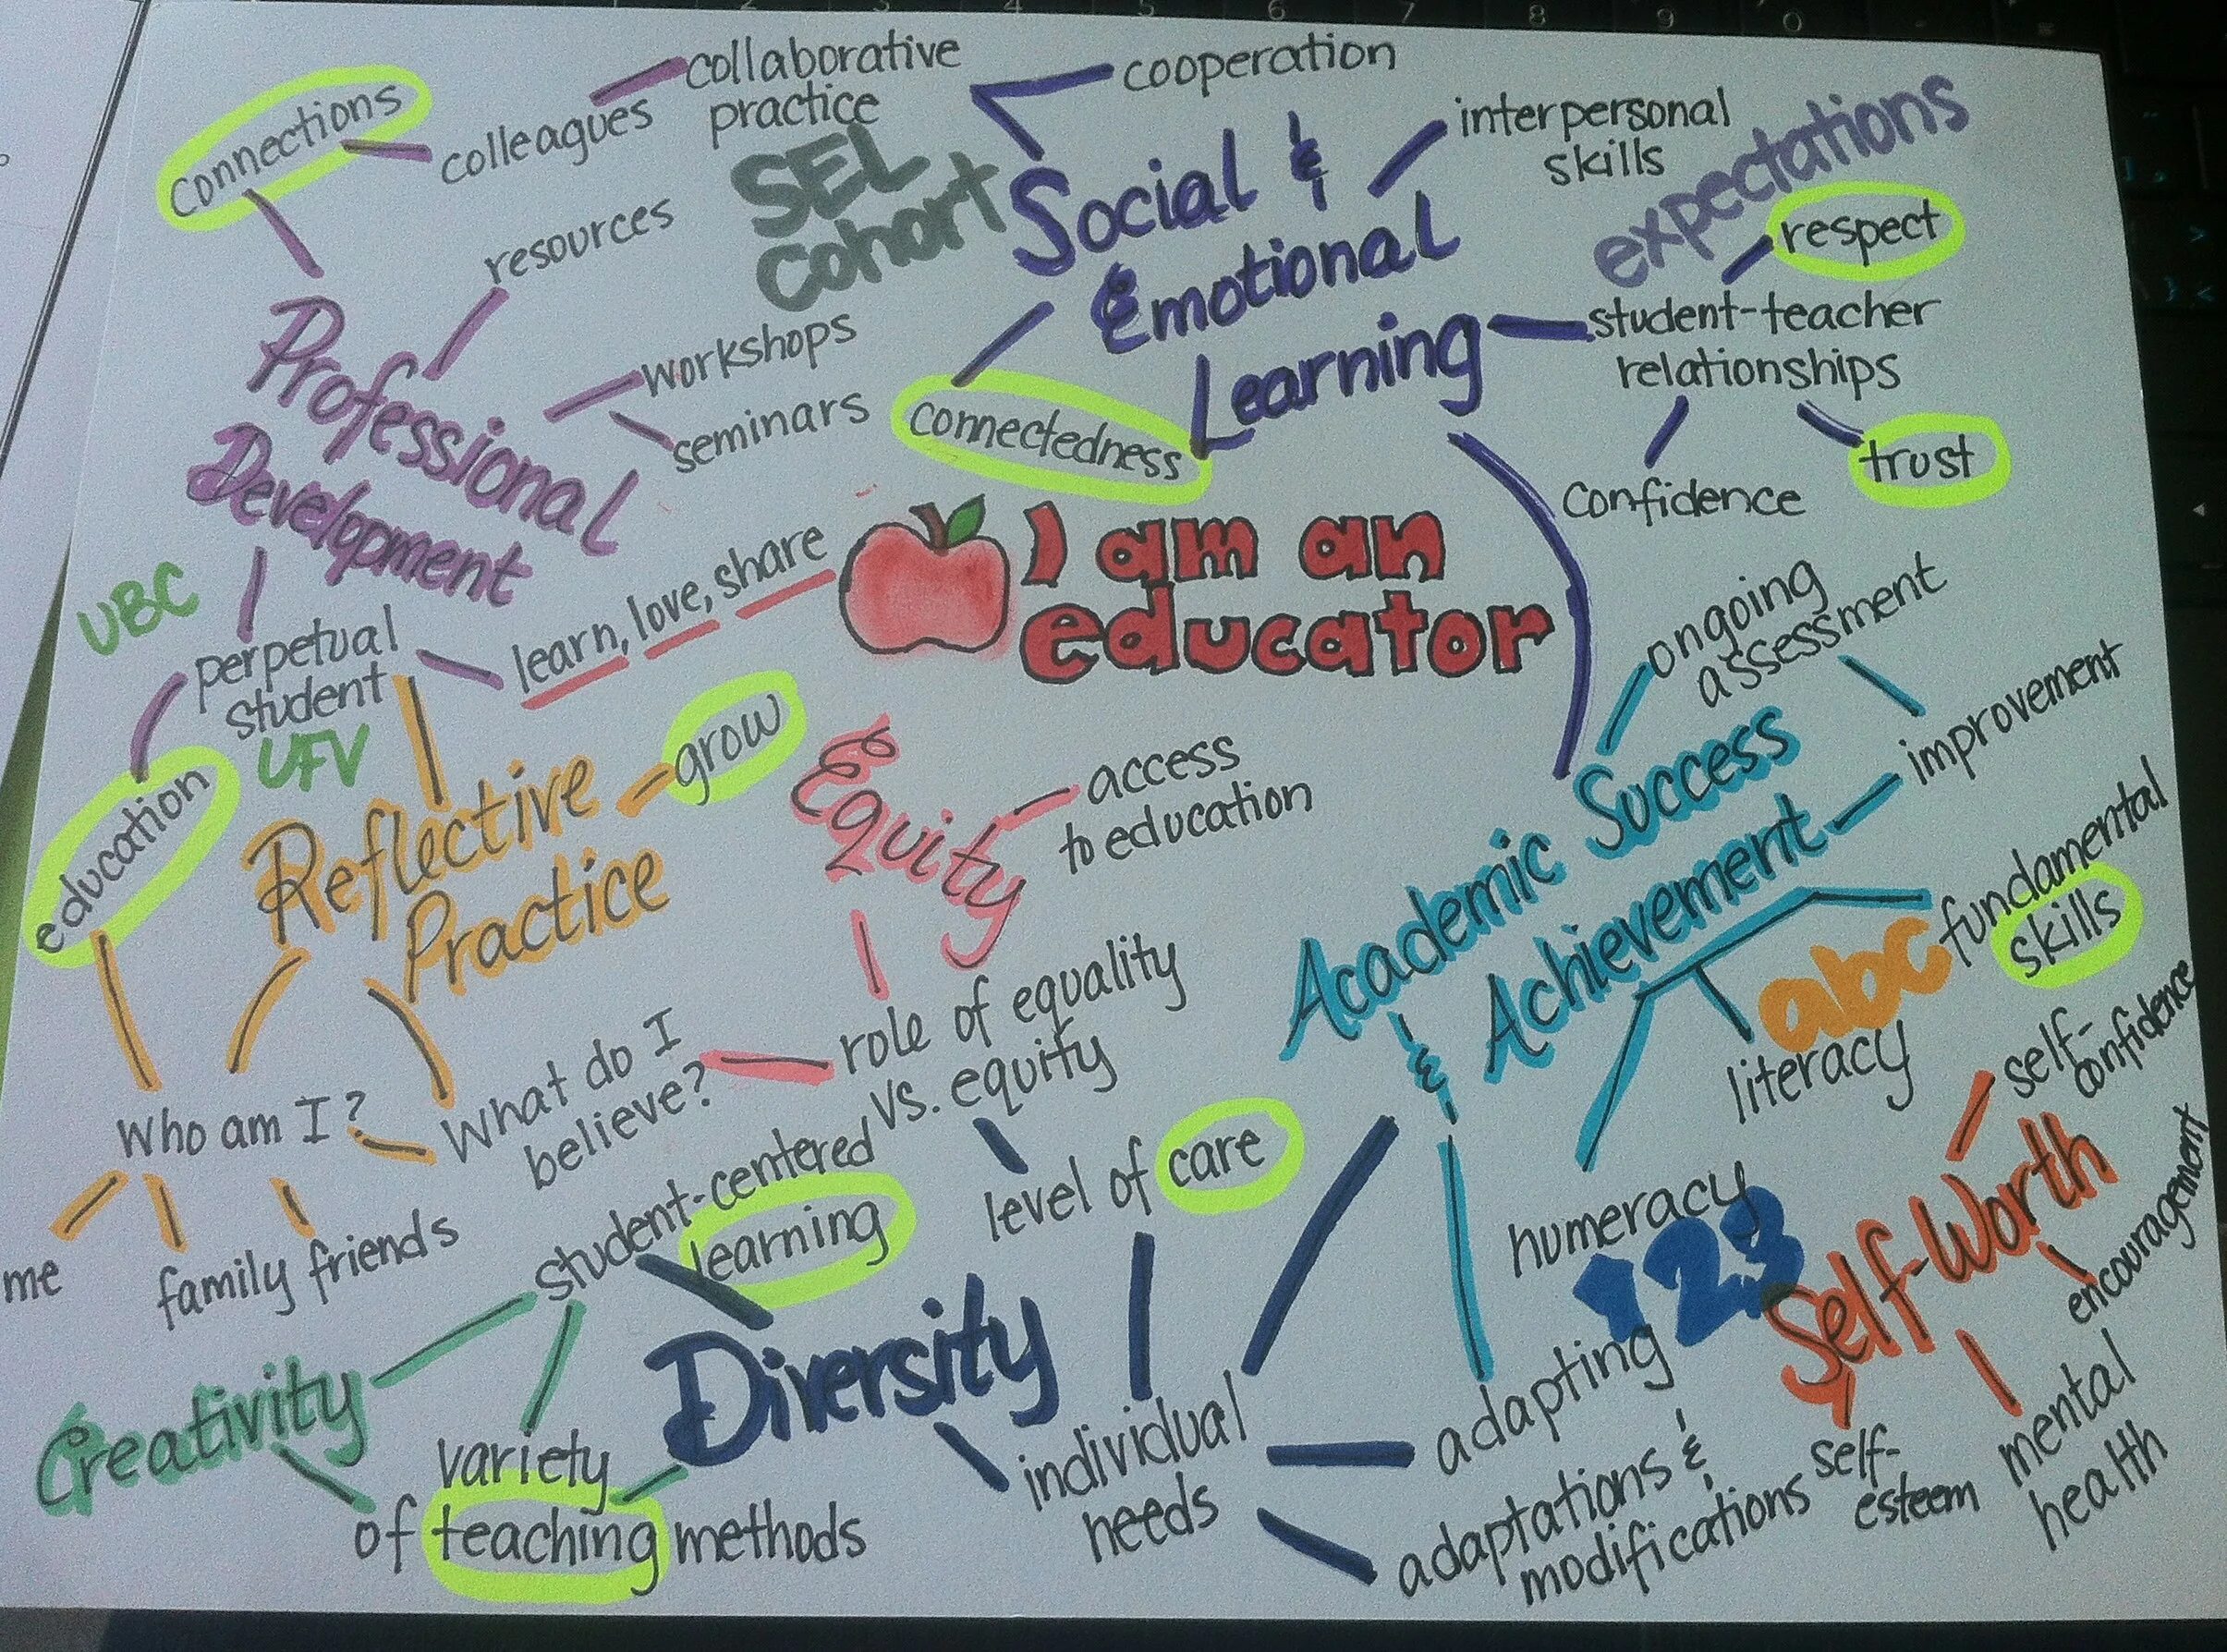 Connections
colleagues
collaborative
practice
SEL
Cohort
resources
Professional
Development
workshops
seminars
cooperation
Social &
Emotional
Learning
interpersonal
skills
expectations
respect
student-teacher
relationships
confidence
trust
connectedness
I am an
educator
UBC
perpetual
student
UFV
learn, love, share
education
Reflective
Practice
grow
Equity
access
to education
role of equality
vs. equity
ongoing
assessment
improvement
Academic Success
& Achievement
fundamental
skills
abc
literacy
numeracy
123
Who am I?
What do I
believe?
me
family
friends
student-centered
learning
level of care
Creativity
variety
of teaching methods
Diversity
individual
needs
adapting
adaptations &
modifications
Self-Worth
self-
confidence
encouragement
self-
esteem
mental
health
2 3 4 5 6 7 8 9 0